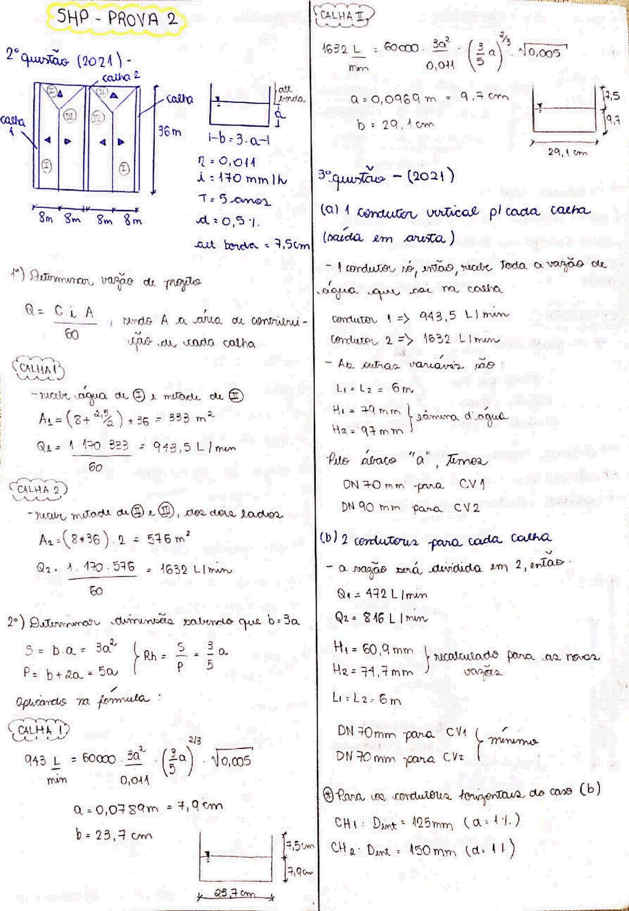 SHP - PROVA 2
2º questão (2021) -
calha 2
calha
calha 1
36m
8m 8m 8m 8m
alt borda
a
b = 3·a
η = 0,011
i = 170 mm/h
T = 5 anos
d = 0,5%
alt borda = 7,5cm
1º) Determinar vazão de projeto
Q = C i A / 60 , sendo A a área de contribui-
ção de cada calha
CALHA 1
- recebe água de I e metade de II
A1 = (8 + 2,5/2) * 36 = 333 m²
Q1 = 1 170 333 / 60 = 943,5 L/min
CALHA 2
- recebe metade de II e III, dos dois lados
A2 = (8*36) . 2 = 576 m²
Q2 = 1. 170. 576 / 60 = 1632 L/min
2º) Determinar dimensão sabendo que b=3a
S = b.a = 3a²
P = b + 2a = 5a
Rh = S/P = 3/5 a
aplicando na fórmula:
CALHA 1
943 L/min = 60000 · 3a²/0,011 · (3/5 a)^2/3 · √0,005
a = 0,0789m = 7,9cm
b = 23,7 cm
7,5cm
7,9cm
23,7 cm
CALHA II
1632 L/min = 60000 · 3a²/0,011 · (3/5 a)^2/3 · √0,005
a = 0,0969m = 9,7cm
b = 29,1cm
7,5
9,7
29,1 cm
3º questão - (2021)
(a) 1 condutor vertical p/ cada calha
(saída em aresta)
- 1 condutor só, então, recebe toda a vazão de
água que cai na calha
condutor 1 => 943,5 L/min
condutor 2 => 1632 L/min
- As outras variáveis são:
L1 = L2 = 6m
H1 = 79mm
H2 = 97mm
lâmina d'água
Pelo ábaco "a", temos
DN 70 mm para CV1
DN 90 mm para CV2
(b) 2 condutores para cada calha
- a vazão será dividida em 2, então:
Q1 = 472 L/min
Q2 = 816 L/min
H1 = 60,9mm
H2 = 74,7mm
recalculado para as novas
vazões
L1 = L2 = 6m
DN 70mm para CV1
DN 70mm para CV2
mínimo
* Para os condutores horizontais do caso (b)
CH1: Dint = 125mm (d = 1%)
CH2: Dint = 150mm (d = 1%)